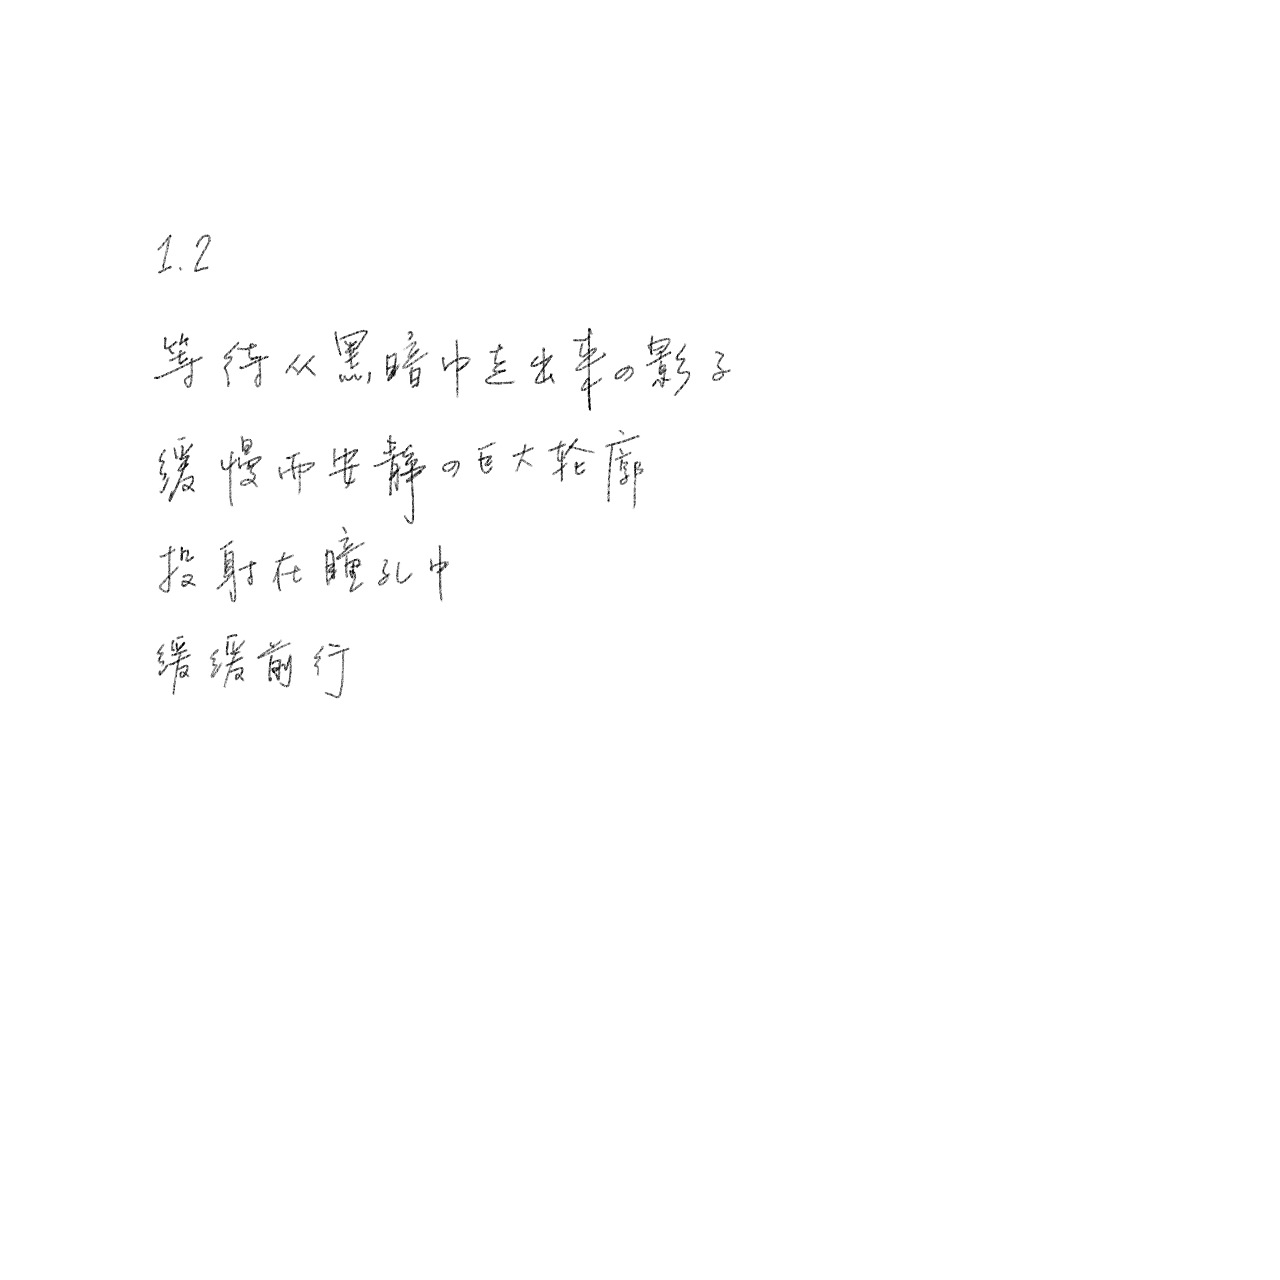 1.2
等待从黑暗中走出来の影子
缓慢而安静の巨大轮廓
投射在瞳孔中
缓缓前行